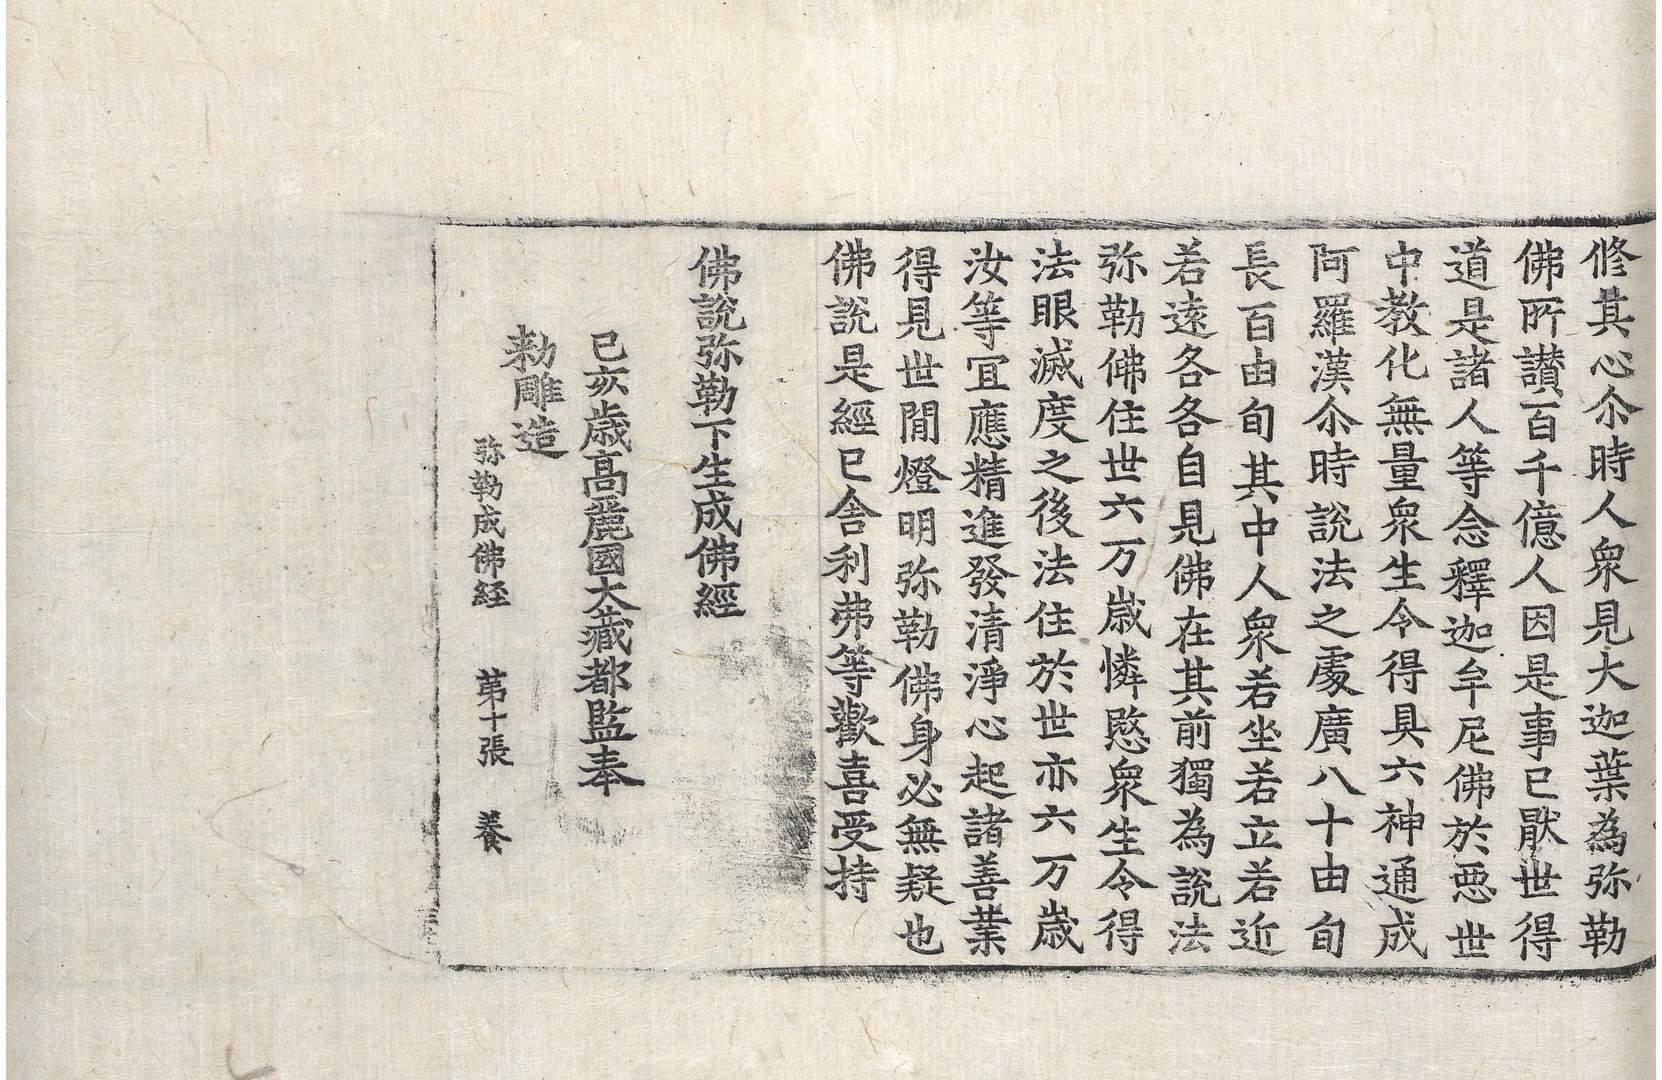 修其心尒時人衆見大迦葉為弥勒
佛所讃百千億人因是事已猒世得
道是諸人等念釋迦牟尼佛於惡世
中教化無量衆生令得具六神通成
阿羅漢尒時說法之處廣八十由旬
長百由旬其中人衆若坐若立若近
若遠各各自見佛在其前獨為說法
弥勒佛住世六万歲憐愍衆生令得
法眼滅度之後法住於世亦六万歲
汝等宜應精進發清淨心起諸善業
得見世閒燈明弥勒佛身必無疑也
佛說是經已舍利弗等歡喜受持
佛說弥勒下生成佛經
己亥歲高麗國大藏都監奉
勑雕造
弥勒成佛経 第十張 養